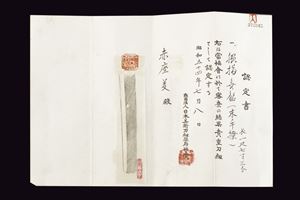 認定書
一、脇指 無銘(末手掻)
長一尺七寸三分
右は當協會に於て審査の結果貴重刀剣
として認定する
昭和五十四年七月八日
財團法人日本美術刀剣保存協會
赤座美 殿